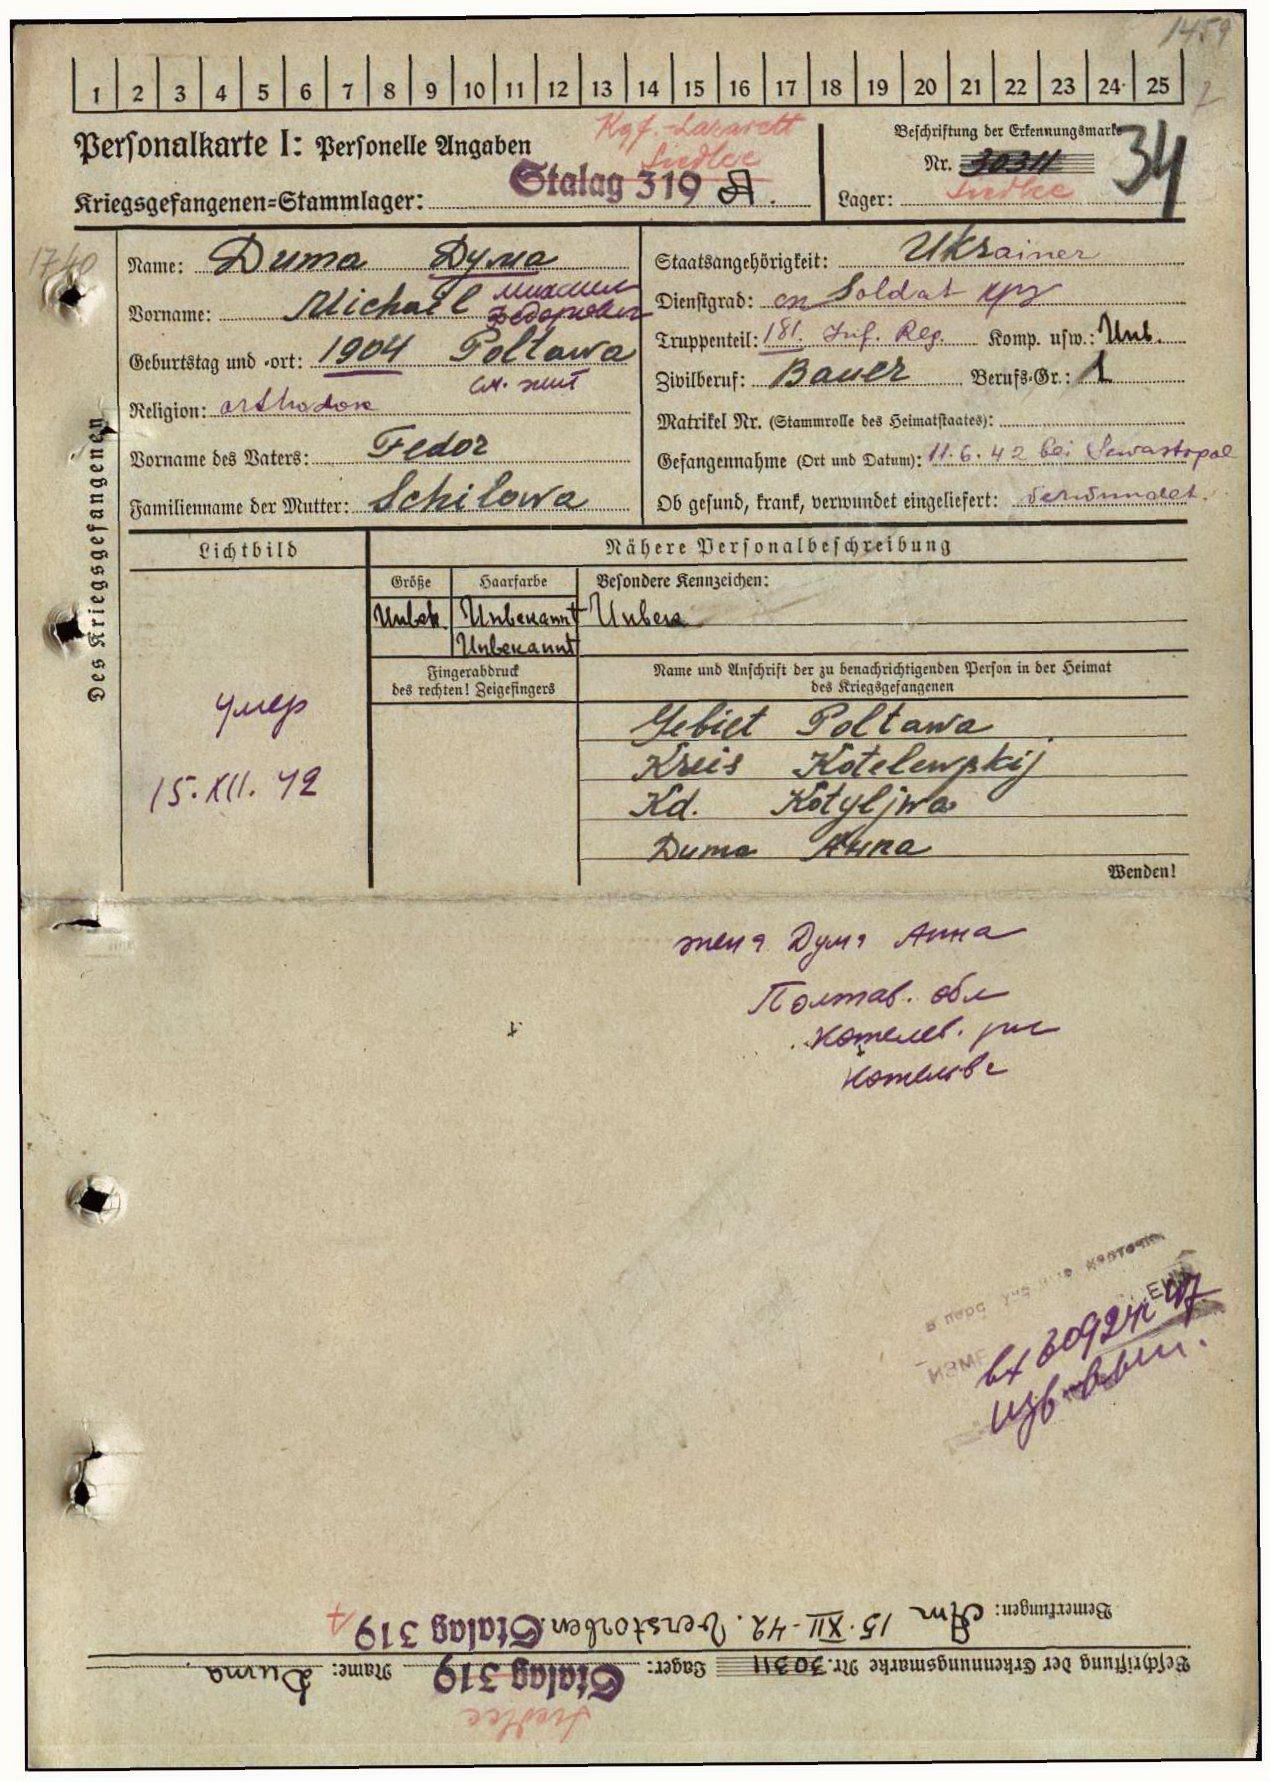 1459
1 2 3 4 5 6 7 8 9 10 11 12 13 14 15 16 17 18 19 20 21 22 23 24 25
Personalkarte I: Personelle Angaben
Kgf.-Lazarett
Siedlce
Kriegsgefangenen=Stammlager: Stalag 319 A.
Beschriftung der Erkennungsmarke
Nr. 30311
34
Lager: Siedlce
1740
Des Kriegsgefangenen
Name: Duma Дума
Vorname: Michael Михаил
Федорович
Geburtstag und -ort: 1904 Poltawa
см. жит
Religion: orthodox
Vorname des Vaters: Fedor
Familienname der Mutter: Schilowa
Staatsangehörigkeit: Ukrainer
Dienstgrad: Soldat
Truppenteil: 181. Inf. Reg. Komp. usw.: Unb.
Zivilberuf: Bauer Berufs-Gr.: 1
Matrikel Nr. (Stammrolle des Heimatstaates):
Gefangennahme (Ort und Datum): 11.6.42 bei Sewastopol
Ob gesund, krank, verwundet eingeliefert: verwundet.
Lichtbild
Nähere Personalbeschreibung
Größe Haarfarbe Besondere Kennzeichen:
Unbek. Unbekannt Unbek
Unbekannt
Fingerabdruck
des rechten! Zeigefingers
Name und Anschrift der zu benachrichtigenden Person in der Heimat
des Kriegsgefangenen
умер
15.XII.42
Gebiet Poltawa
Kreis Kotelewskij
Kd. Kotyljwa
Duma Anna
Wenden!
жена Дума Анна
Полтав. обл
Котелев. р-н
Котельва
вх 30924 47
изв. выш.
Bemerkungen: Am 15.XII-42. Verstorben. Stalag 319 A
Beschriftung der Erkennungsmarke Nr. 30311 Lager: Stalag 319 Name: Duma
Siedlce